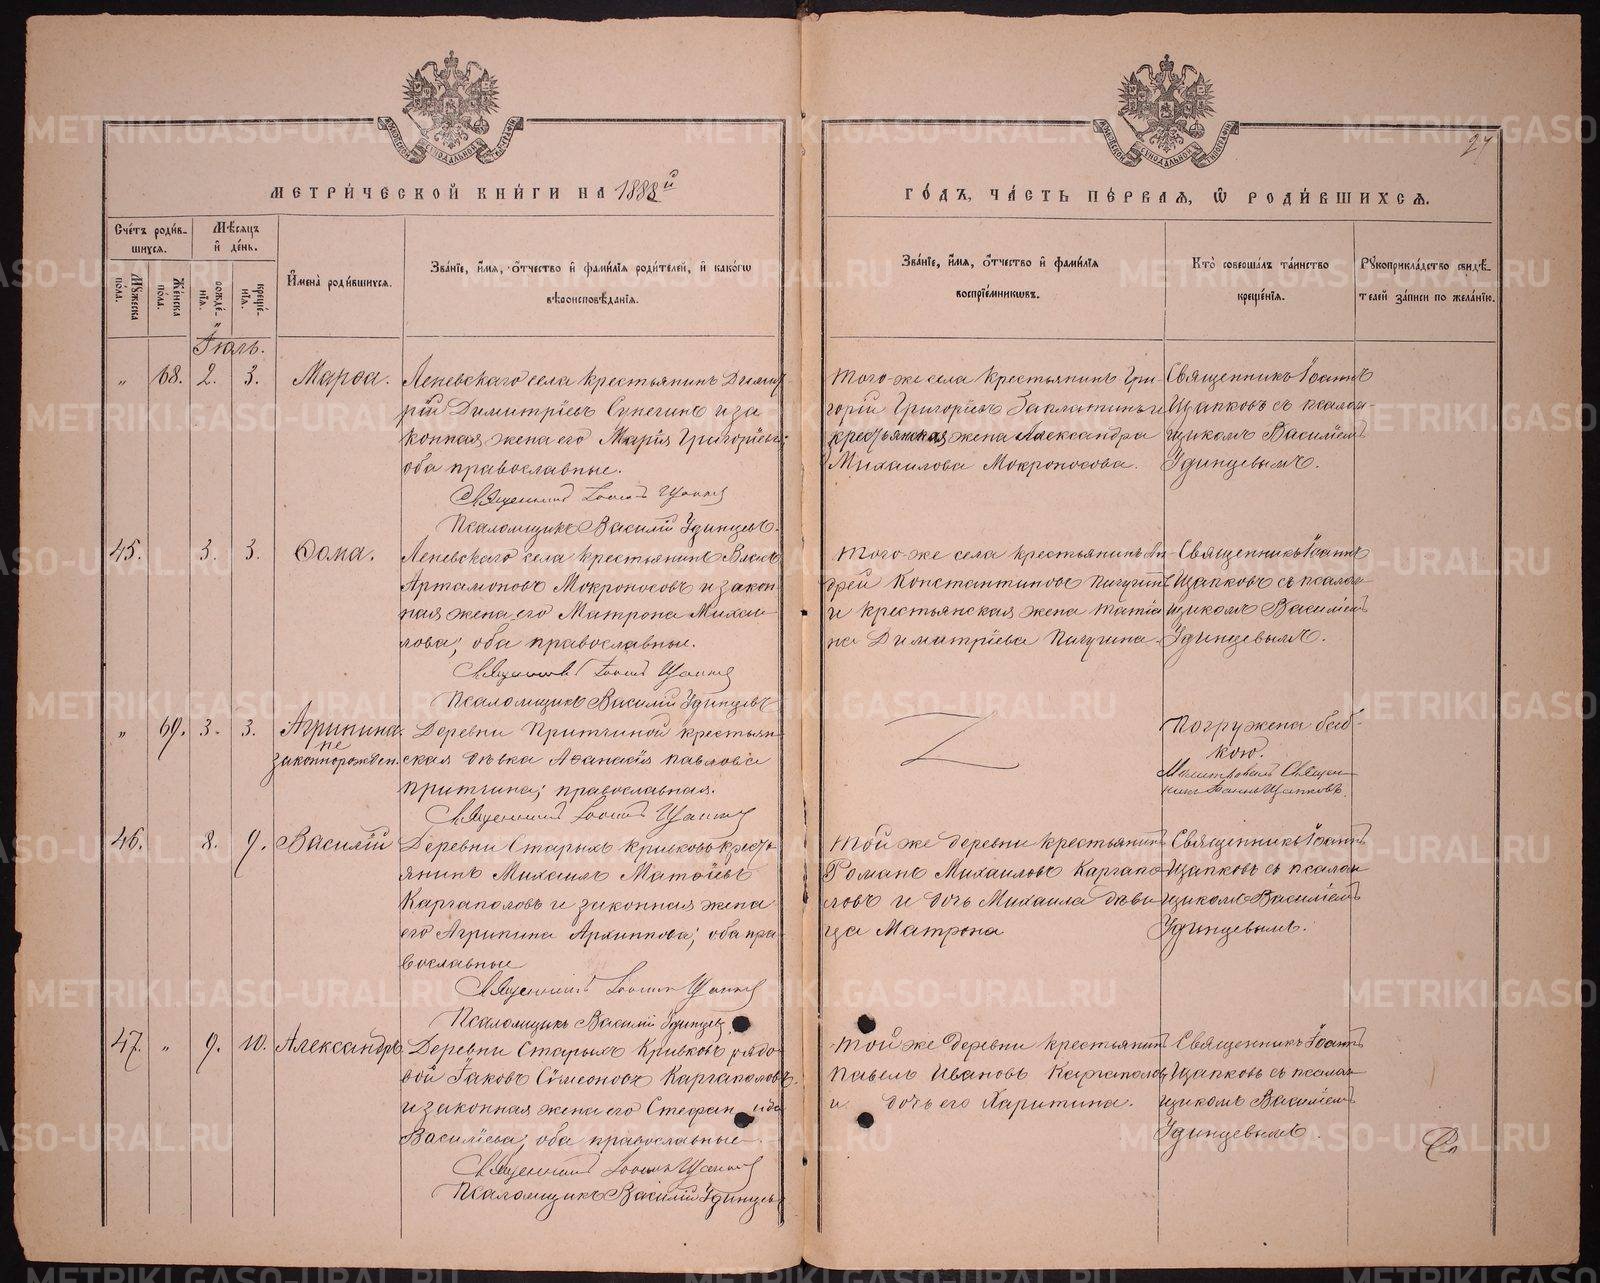 МЕТРИ́ЧЕСКОЙ КНИ́ГИ НА 1888й
ГО́ДЪ, ЧА́СТЬ ПЕ́РВАЯ, Ѡ РОДИ́ВШИХСЯ.
27
Сче́тъ роди́в-
шихся.
Мѣ́сяцъ
и де́нь.
Му́жеска
пола.
Же́нска
пола.
рожде́-
нія.
креще́-
нія.
Имена̀ роди́вшихся.
Зва́ніе, и́мя, ѻ́тчество и фами́лія роди́телей, и како́гѡ
вѣроисповѣ́данія.
Зва́ніе, и́мя, ѻ́тчество и фами́лія
воспріе́мниковъ.
Кто̀ соверша́лъ та́инство
креще́нія.
Рукоприкла́дство свидѣ́-
телей за́писи по жела́нію.
Іюль.
„ 68. 2. 3. Марѳа.
Леневскаго села крестьянинъ Дими-
рій Димитріевъ Сунегинъ и за
конная жена его Марія Григорьева;
оба православные.
Священникъ Іоаннъ Щапковъ
Псаломщикъ Василій Удинцевъ.
Того-же села крестьянинъ Гри-
горій Григорьевъ Заклатинъ и
крестьянская жена Александра
Михаилова Мокроносова.
Священникъ Іоаннъ
Щапковъ съ псалом-
щикомъ Василіемъ
Удинцевымъ.
45. 3. 3. Ѳома.
Леневскаго села крестьянинъ Власъ
Артамоновъ Мокроносовъ и закон
ная жена его Матрона Михаи
лова; оба православные.
Священникъ Іоаннъ Щапковъ
Псаломщикъ Василій Удинцевъ
Того-же села крестьянинъ Ан-
дрей Константиновъ Пичугинъ
и крестьянская жена Татіа
на Димитріева Пичугина.
Священникъ Іоаннъ
Щапковъ съ псалом-
щикомъ Василіемъ
Удинцевымъ.
„ 69. 3. 3. Агрипина
не
законнорожден.
Деревни Притчиной крестьян
ская дѣвка Аѳанасія Павлова
Притчина; православная.
Священникъ Іоаннъ Щапковъ
Погружена баб-
кою.
Молитвовалъ Священ-
никъ Іоаннъ Щапковъ.
46. 8. 9. Василій
Деревни Старыхъ Кривково крестья
янинъ Михаилъ Матѳіевъ
Каргаполовъ и законная жена
его Агрипина Архиппова; оба пра
вославные
Священникъ Іоаннъ Щапковъ
Псаломщикъ Василій Удинцевъ
Той же деревни крестьянинъ
Романъ Михаиловъ Каргапо
ловъ и дочь Михаила дѣви
ца Матрона
Священникъ Іоаннъ
Щапковъ съ псалом
щикомъ Василіемъ
Удинцевымъ.
47. „ 9. 10. Александръ
Деревни Старыхъ Кривковъ рядо
вой Іаковъ Сѵмеоновъ Каргаполовъ
и законная жена его Стефанида
Василіева; оба православные.
Священникъ Іоаннъ Щапковъ
Псаломщикъ Василій Удинцевъ
Той же деревни крестьянинъ
Павелъ Ивановъ Каргаполовъ
и дочь его Харитина.
Священникъ Іоаннъ
Щапковъ съ псалом
щикомъ Василіемъ
Удинцевымъ.